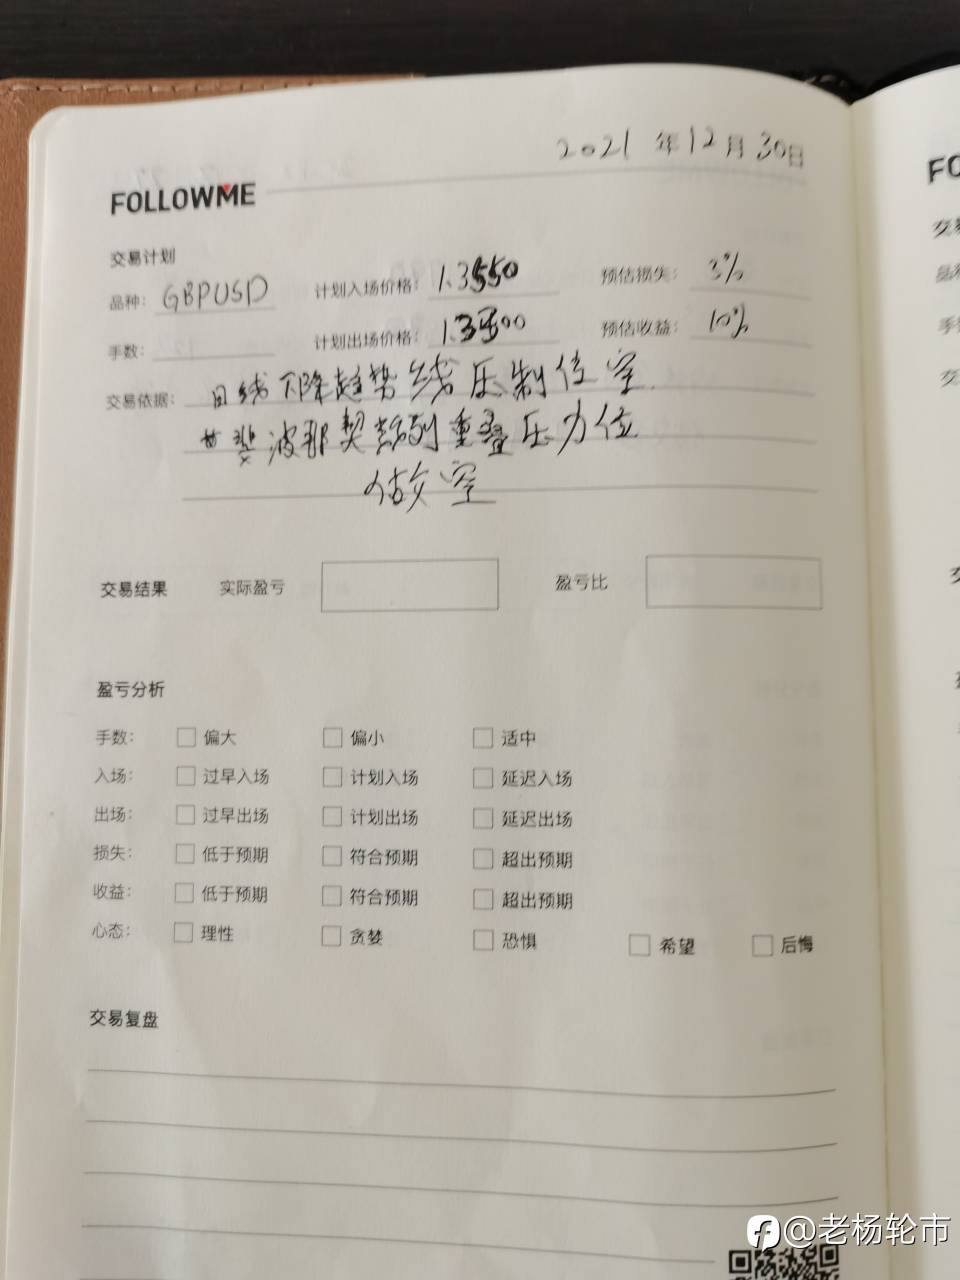 2021 年 12 月 30 日
FOLLOWME
交易计划
品种: GBPUSD 计划入场价格: 1.3550 预估损失: 3%
手数: 计划出场价格: 预估收益: 10%
交易依据: 日线下降趋势线压制位空
斐波那契数列重叠压力位
做空
交易结果 实际盈亏 盈亏比
盈亏分析
手数: 偏大 偏小 适中
入场: 过早入场 计划入场 延迟入场
出场: 过早出场 计划出场 延迟出场
损失: 低于预期 符合预期 超出预期
收益: 低于预期 符合预期 超出预期
心态: 理性 贪婪 恐惧 希望 后悔
交易复盘
@老杨轮市